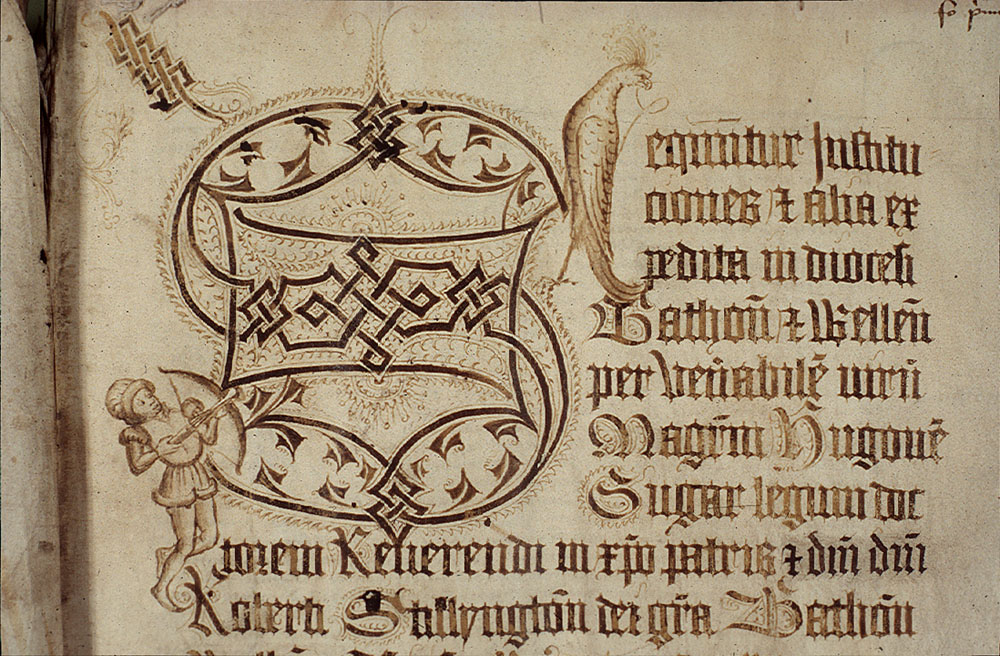 fo p̄m
Sequūtur Institu
ciones & alia ex
pedita in diocesi
Bathoñ & Welleñ
per Veñabilē virū
Magr̄m Hugonē
Sugar legum doc
torem Reverendi in xp̄o patris & dn̄i dn̄i
Roberti Stillyngtōn dei gr̄a Bathōn